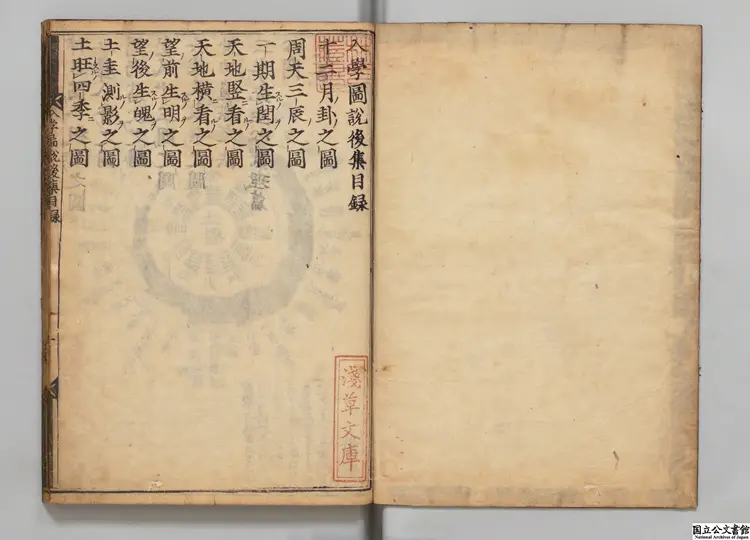 入學圖說後集目録
十二月卦之圖
周天三辰之圖
一期生閏之圖
天地竪看之圖
天地橫看之圖
望前生明之圖
望後生魄之圖
土圭測影之圖
土旺四季之圖
入學圖說後集目録
淺草文庫
国立公文書館
National Archives of Japan